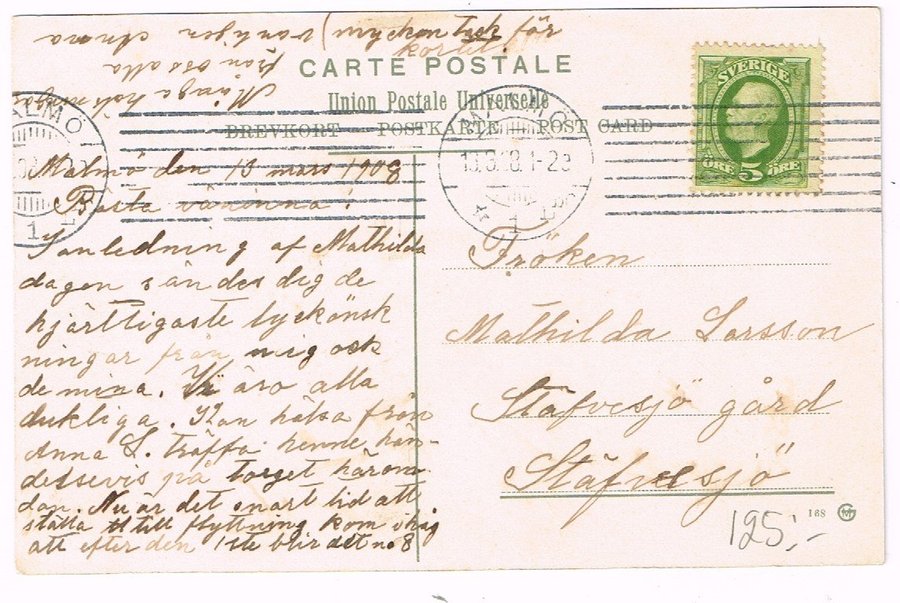 CARTE POSTALE
Union Postale Universelle
BREVKORT POSTKARTE POST CARD
SVERIGE
ÖRE 5 ÖRE
MALMÖ
1
MALMÖ
13.3.08.1-2
1
Malmö den 13 mars 1908
Bästa väninna!
I anledning af Mathilda
dagen sändes dig de
hjärttigaste lyckönsk
ningar från mig och
de mina. Vi äro alla
dukliga. Kan hälsa från
Anna L. träffa henne hän-
delsevis på torget härom
dan. Nu är det snart tid att
ställa till flyttning kom ihåg
att efter den 1ste blir det no 8
för
Många hälsningar
från oss alla
vänligen Anna
Fröken
Mathilda Larsson
Stäfvesjö gård
Stäfvesjö
168
125:-